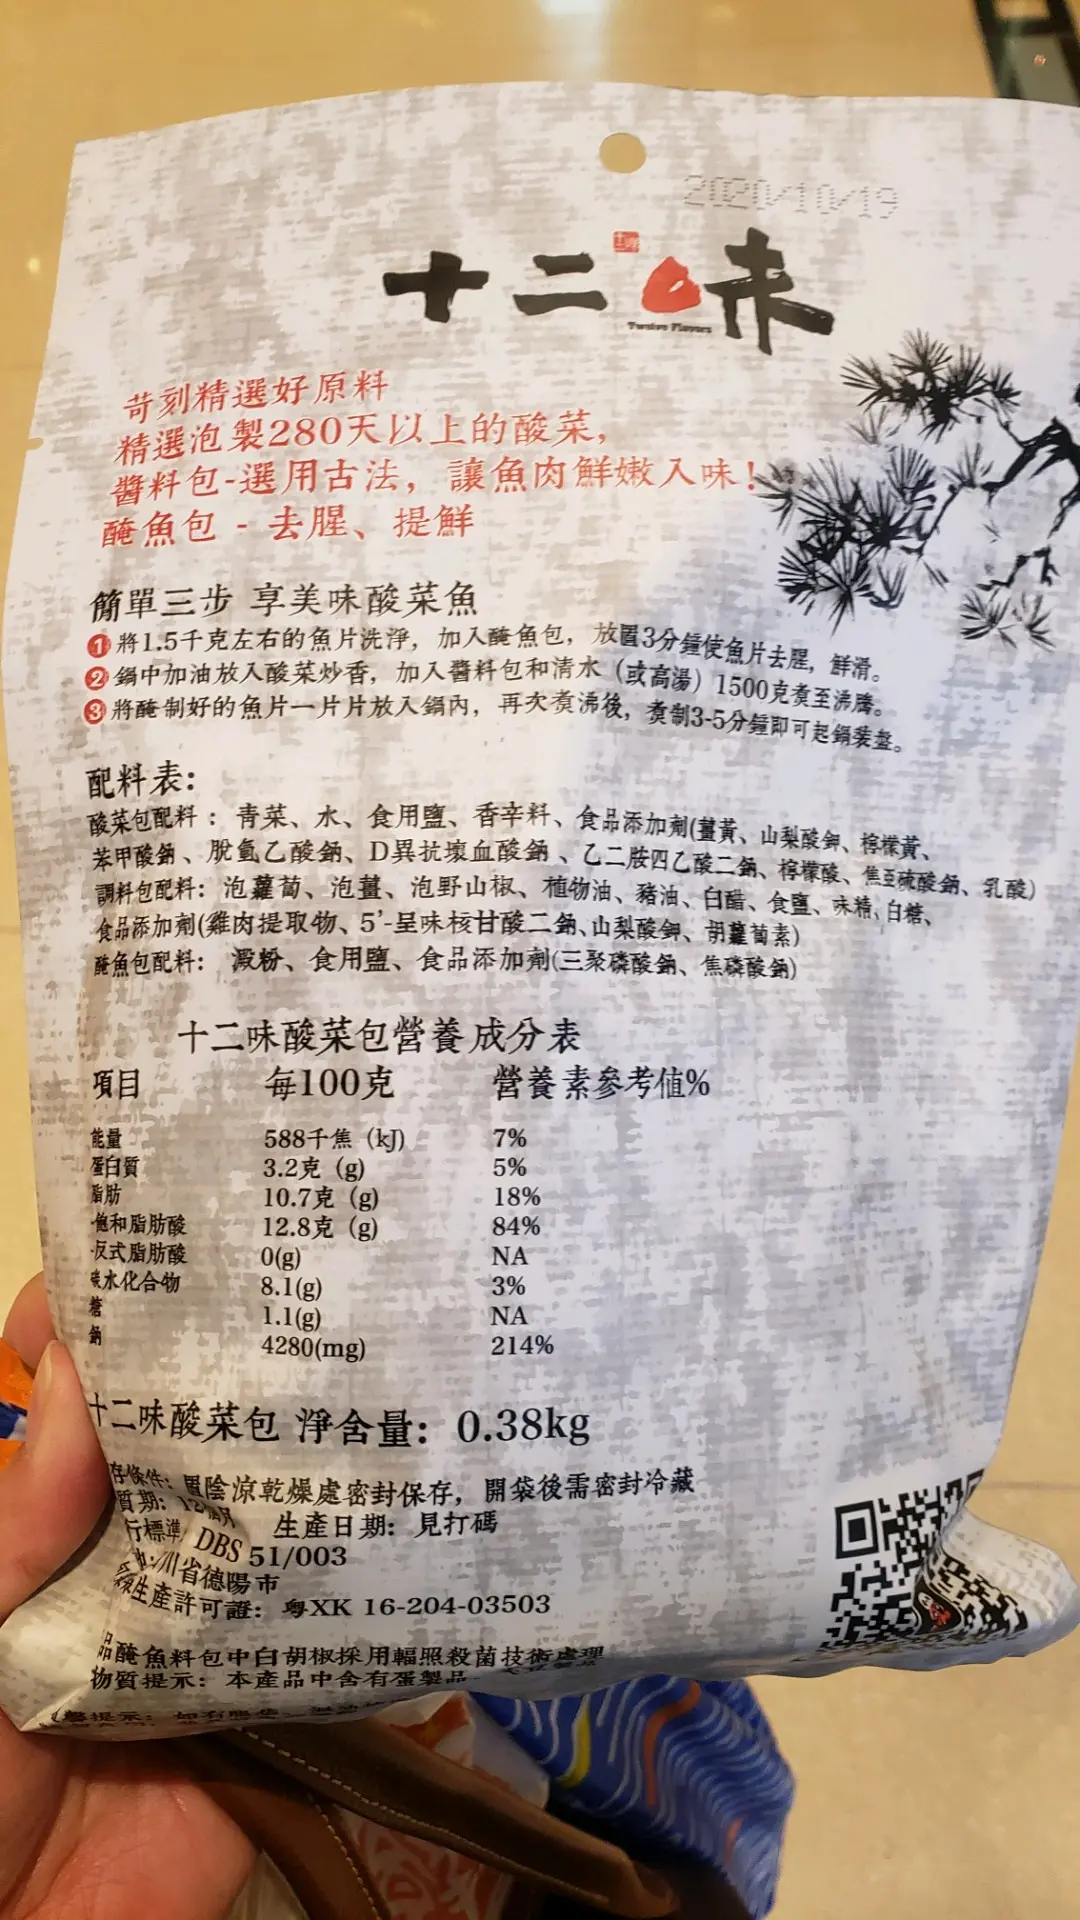 2020/10/19
十二味
Twelve Flavors
苛刻精選好原料
精選泡製280天以上的酸菜，
醬料包-選用古法，讓魚肉鮮嫩入味！
醃魚包 - 去腥、提鮮
簡單三步 享美味酸菜魚
1 將1.5千克左右的魚片洗淨，加入醃魚包，放置3分鐘使魚片去腥，鮮滑。
2 鍋中加油放入酸菜炒香，加入醬料包和清水（或高湯）1500克煮至沸騰。
3 將醃制好的魚片一片片放入鍋內，再次煮沸後，煮制3-5分鐘即可起鍋裝盤。
配料表：
酸菜包配料：青菜、水、食用鹽、香辛料、食品添加劑(薑黃、山梨酸鉀、檸檬黃、
苯甲酸鈉、脫氫乙酸鈉、D異抗壞血酸鈉、乙二胺四乙酸二鈉、檸檬酸、焦亞硫酸鈉、乳酸)
調料包配料：泡蘿蔔、泡薑、泡野山椒、植物油、豬油、白醋、食鹽、味精、白糖、
食品添加劑(雞肉提取物、5'-呈味核甘酸二鈉、山梨酸鉀、胡蘿蔔素)
醃魚包配料：澱粉、食用鹽、食品添加劑(三聚磷酸鈉、焦磷酸鈉)
十二味酸菜包營養成分表
項目 每100克 營養素參考值%
能量 588千焦（kJ) 7%
蛋白質 3.2克（g) 5%
脂肪 10.7克（g) 18%
-飽和脂肪酸 12.8克（g) 84%
-反式脂肪酸 0(g) NA
碳水化合物 8.1(g) 3%
糖 1.1(g) NA
鈉 4280(mg) 214%
十二味酸菜包 淨含量：0.38kg
存條件：置陰涼乾燥處密封保存，開袋後需密封冷藏
質期：12個月 生產日期：見打碼
行標準：DBS 51/003
川省德陽市
生產許可證：粵XK 16-204-03503
品醃魚料包中白胡椒採用輻照殺菌技術處理
物質提示：本產品中含有蛋製品
提示：如有